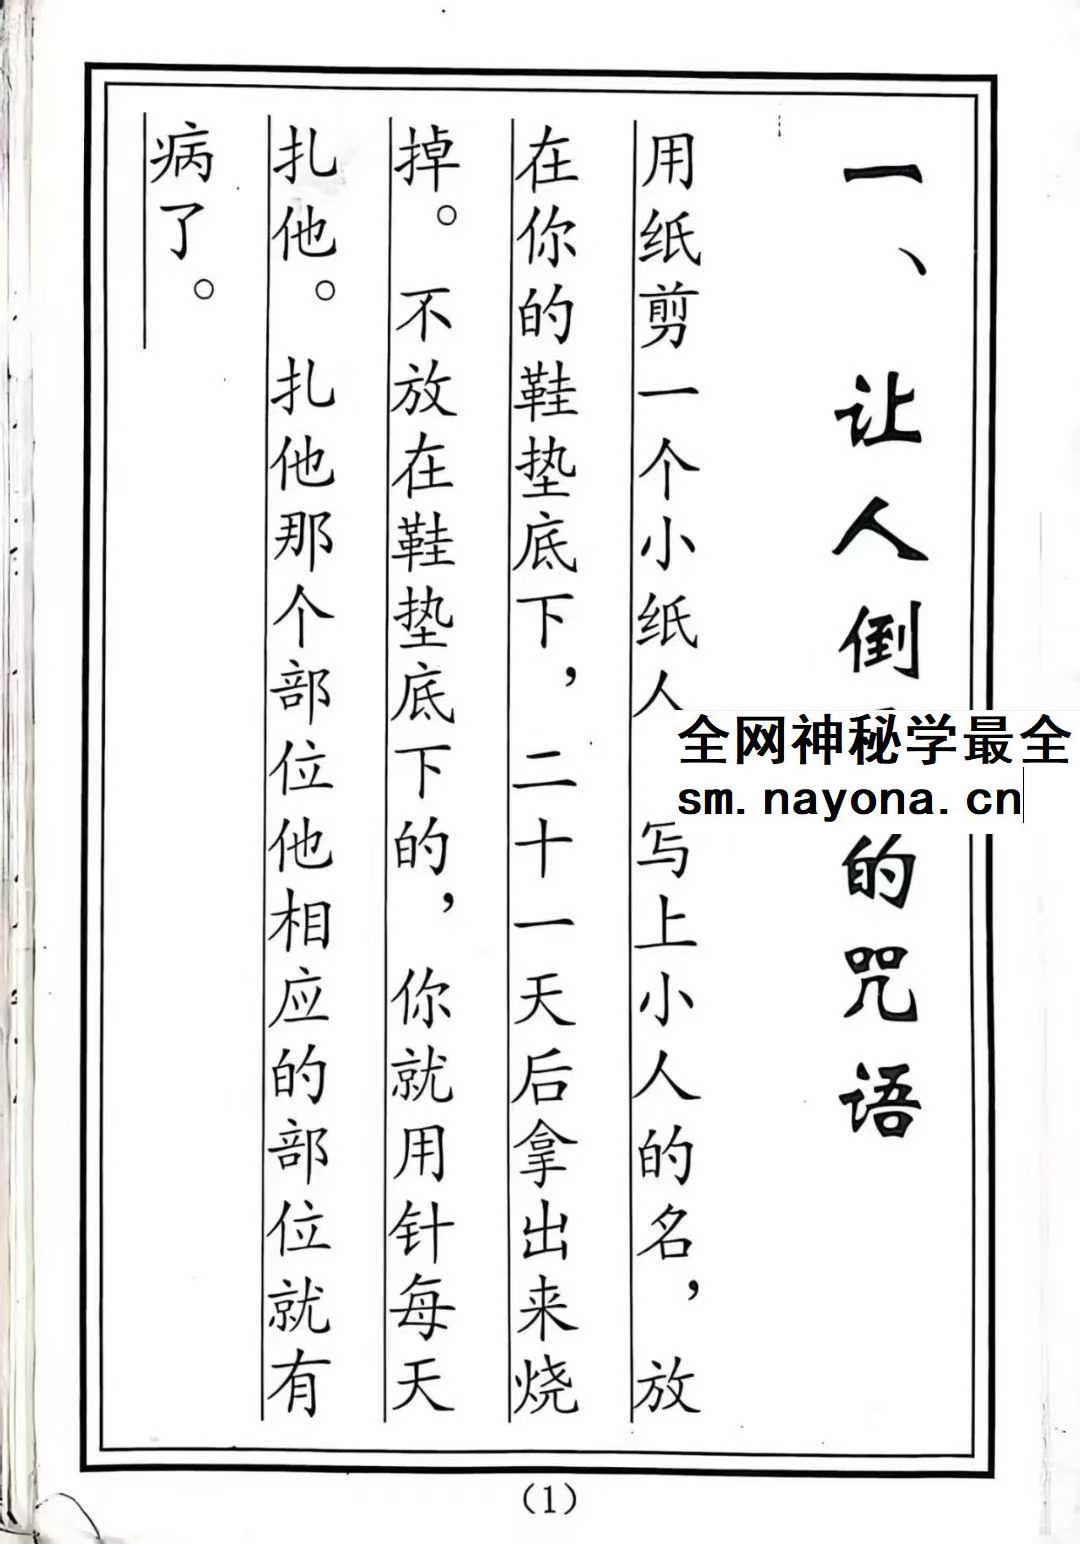 一、让人倒的咒语
用纸剪一个小纸人 写上小人的名，放
在你的鞋垫底下，二十一天后拿出来烧
掉。不放在鞋垫底下的，你就用针每天
扎他。扎他那个部位他相应的部位就有
病了。
全网神秘学最全
sm.nayona.cn
（1）